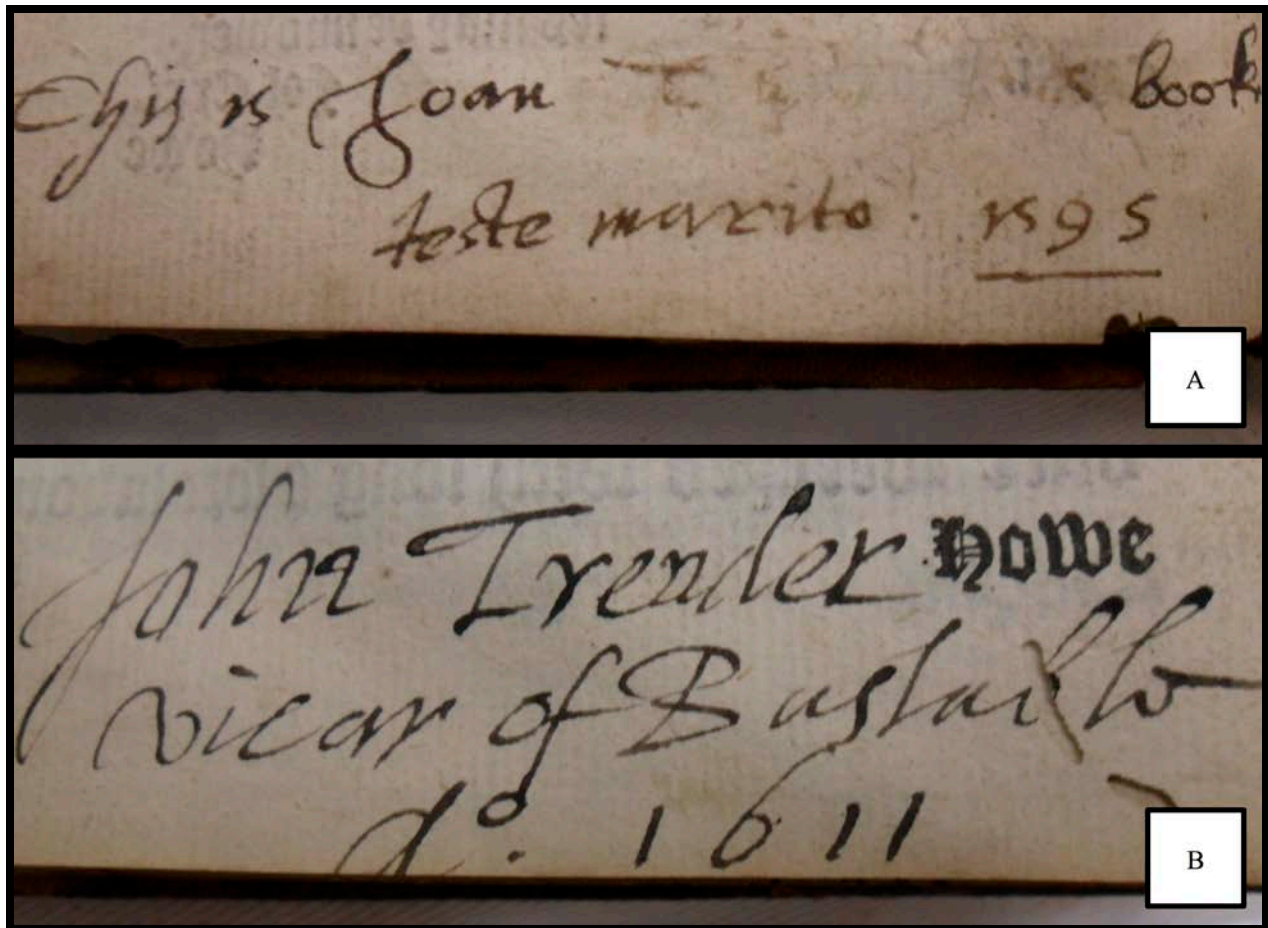 This is Joan book
teste marito 1595
A
John Trender Howe
vicar of
d°. 1611
B